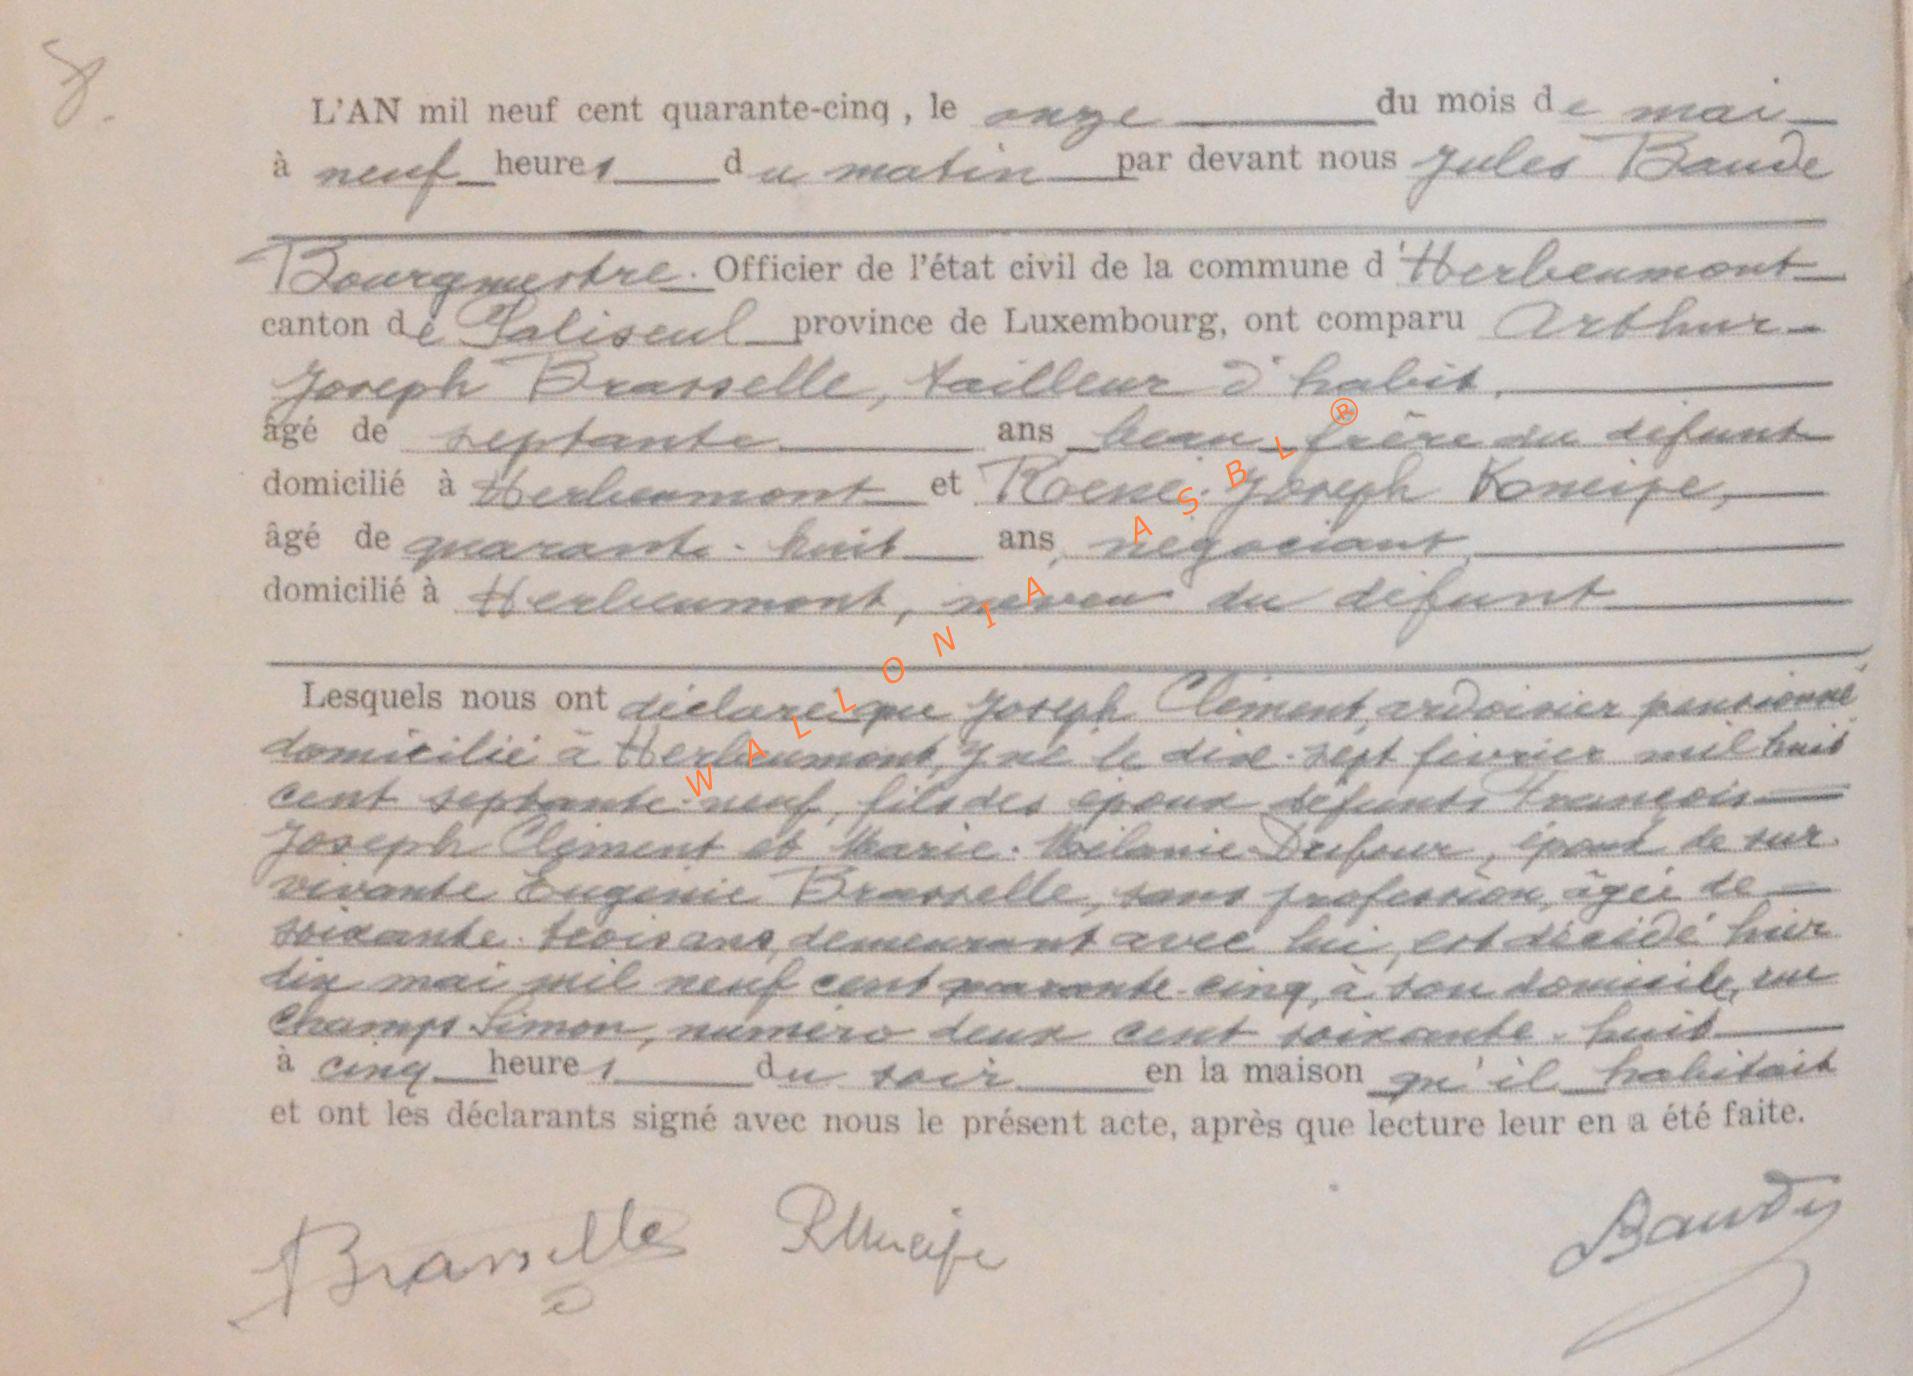 8.
L'AN mil neuf cent quarante-cinq, le onze du mois de mai
à neuf heures du matin par devant nous Jules Baude
Bourgmestre. Officier de l'état civil de la commune d'Herbeumont
canton de Paliseul province de Luxembourg, ont comparu Arthur
Joseph Brasselle, tailleur d'habit,
âgé de septante ans beau-frère du défunt
domicilié à Herbeumont et René-Joseph
âgé de quarante-huit ans, négociant,
domicilié à Herbeumont, neveu du défunt
Lesquels nous ont déclaré que Joseph Clément, ardoisier pensionné
domicilié à Herbeumont, y né le dix-sept février mil huit
cent septante-neuf, fils des époux défunts François
Joseph Clément et Marie-Mélanie Dufour, époux de sur
vivante Eugénie Brasselle, sans profession, âgée de
soixante-trois ans, demeurant avec lui, est décédé hier
dix mai mil neuf cent quarante-cinq, à son domicile, rue
Champs Simon, numéro deux cent soixante-huit
à cinq heures du soir en la maison qu'il habitait
et ont les déclarants signé avec nous le présent acte, après que lecture leur en a été faite.
Brasselle
WALLONIA ASBL ®